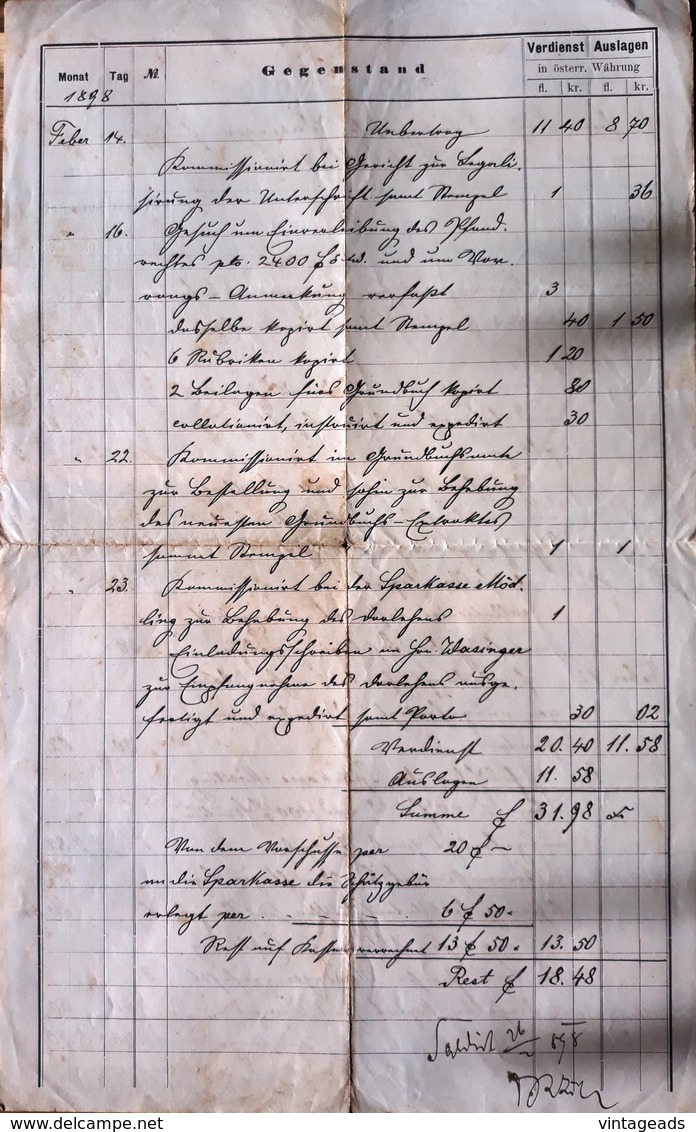 Verdienst Auslagen
Monat Tag № Gegenstand in österr. Währung
fl. kr. fl. kr.
1898
Feber 14. Uebertrag 11 40 8 70
Kommissionirt bei Gericht zur Legali-
sirung der Unterschrift samt Stempel 1 36
" 16. Gesuch um Einverleibung des Pfand-
rechtes pto. 2400 f s.A. und um Vor-
rangs-Anmerkung verfaßt 3
dasselbe kopirt samt Stempel 40 1 50
6 Rubriken kopirt 1 20
2 Beilagen fürs Grundbuch kopirt 80
collationirt, instruirt und expedirt 30
" 22. Kommissionirt im Grundbuchsamte
zur Bestellung und sohin zur Behebung
des neuesten Grundbuchs-Extraktes
sammt Stempel 1 1
" 23. Kommissionirt bei der Sparkasse Möd-
ling zur Behebung des Darlehens 1
Einladungsschreiben an Hrn. Wasinger
zur Empfangnahme des Darlehens ausge-
fertigt und expedirt samt Porto 30 02
Verdienst 20. 40 11. 58
Auslagen 11. 58
Summe f 31. 98
Von dem Vorschusse per 20 f –
an die Sparkasse die Schätzgebür
erlegt per 6 f 50.
Rest auf Kosten verrechnet 13 f 50. 13. 50
Rest f 18. 48
Saldirt 26/2 898
vintageads